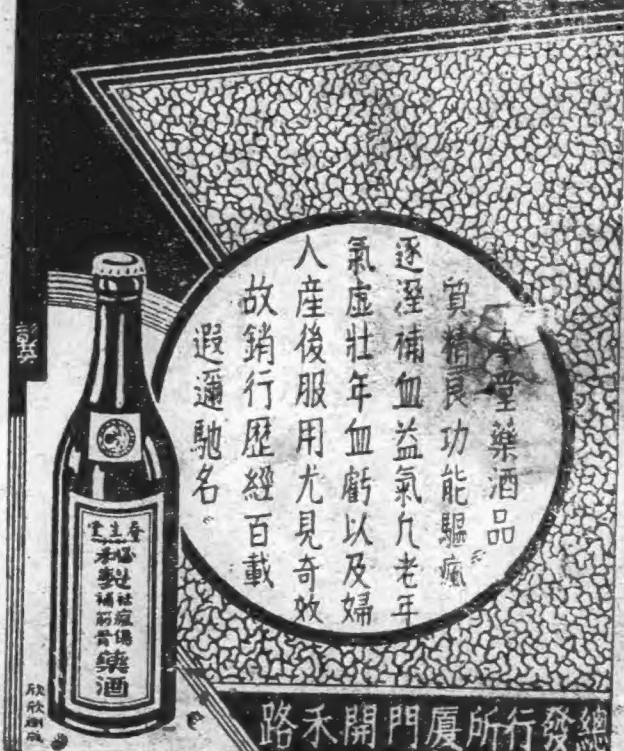 本堂藥酒品
質精良功能驅瘋
逐溼補血益氣凢老年
氣虛壯年血虧以及婦
人產後服用尤見奇效
故銷行歷經百載
遐邇馳名
生堂
祛瘋傷
補筋骨
藥酒
總發行所厦門開禾路